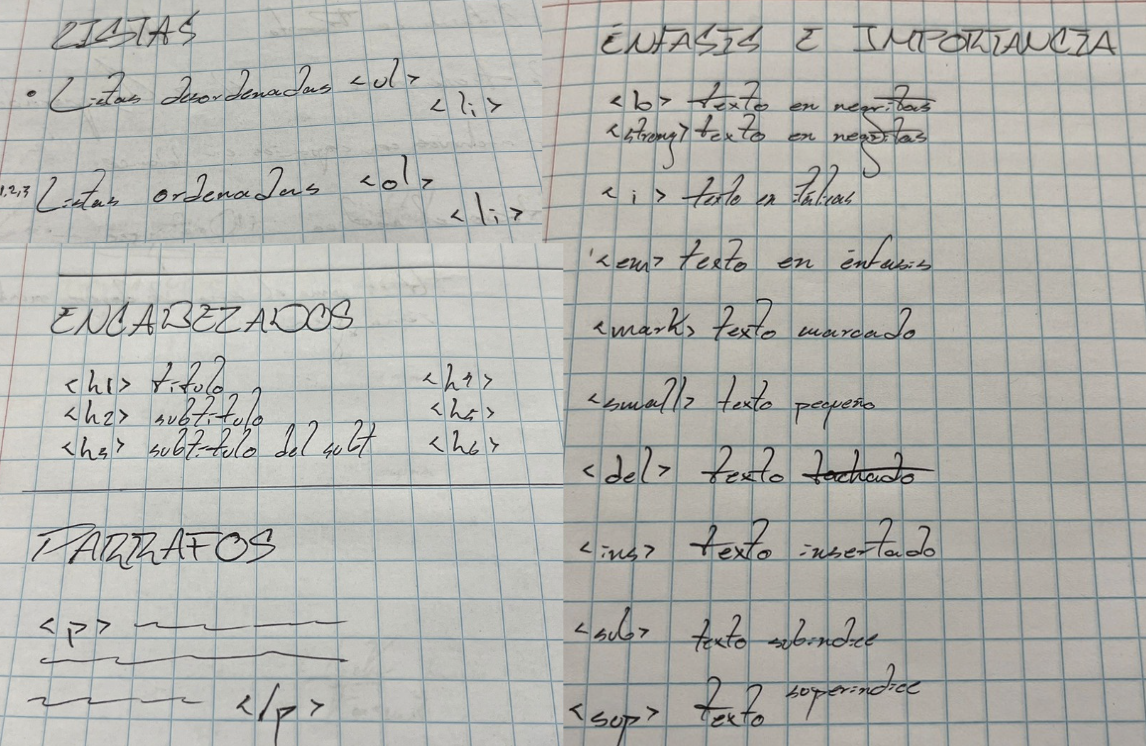 LISTAS
• Listas desordenadas <ul>
<li>
1,2,3 Listas ordenadas <ol>
<li>
ENCABEZADOS
<h1> titulo <h4>
<h2> subtitulo <h5>
<h3> subtitulo del subt <h6>
PARRAFOS
<p>
</p>
ENFASIS E IMPORTANCIA
<b> texto en negritas
<strong> texto en negritas
<i> texto en italicas
<em> texto en enfasis
<mark> texto marcado
<small> texto pequeño
<del> texto tachado
<ins> texto insertado
<sub> texto subindice
<sup> texto superindice